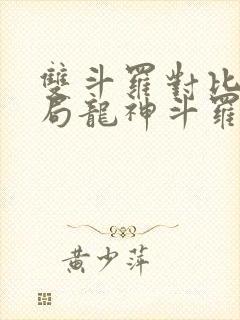 雙斗羅對比
局龍神斗羅
黃少萍